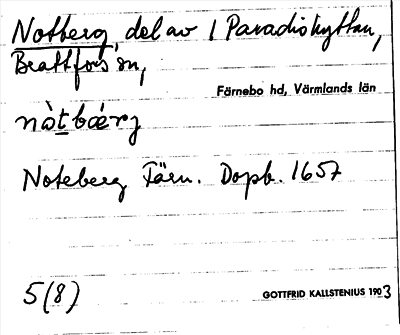 Notberg, del av 1 Paradishyttan,
Brattfors sn,
Färnebo hd, Värmlands län
nòtbǽrj
Noteberg Färn. Dopb. 1657
5(8)
GOTTFRID KALLSTENIUS 1903